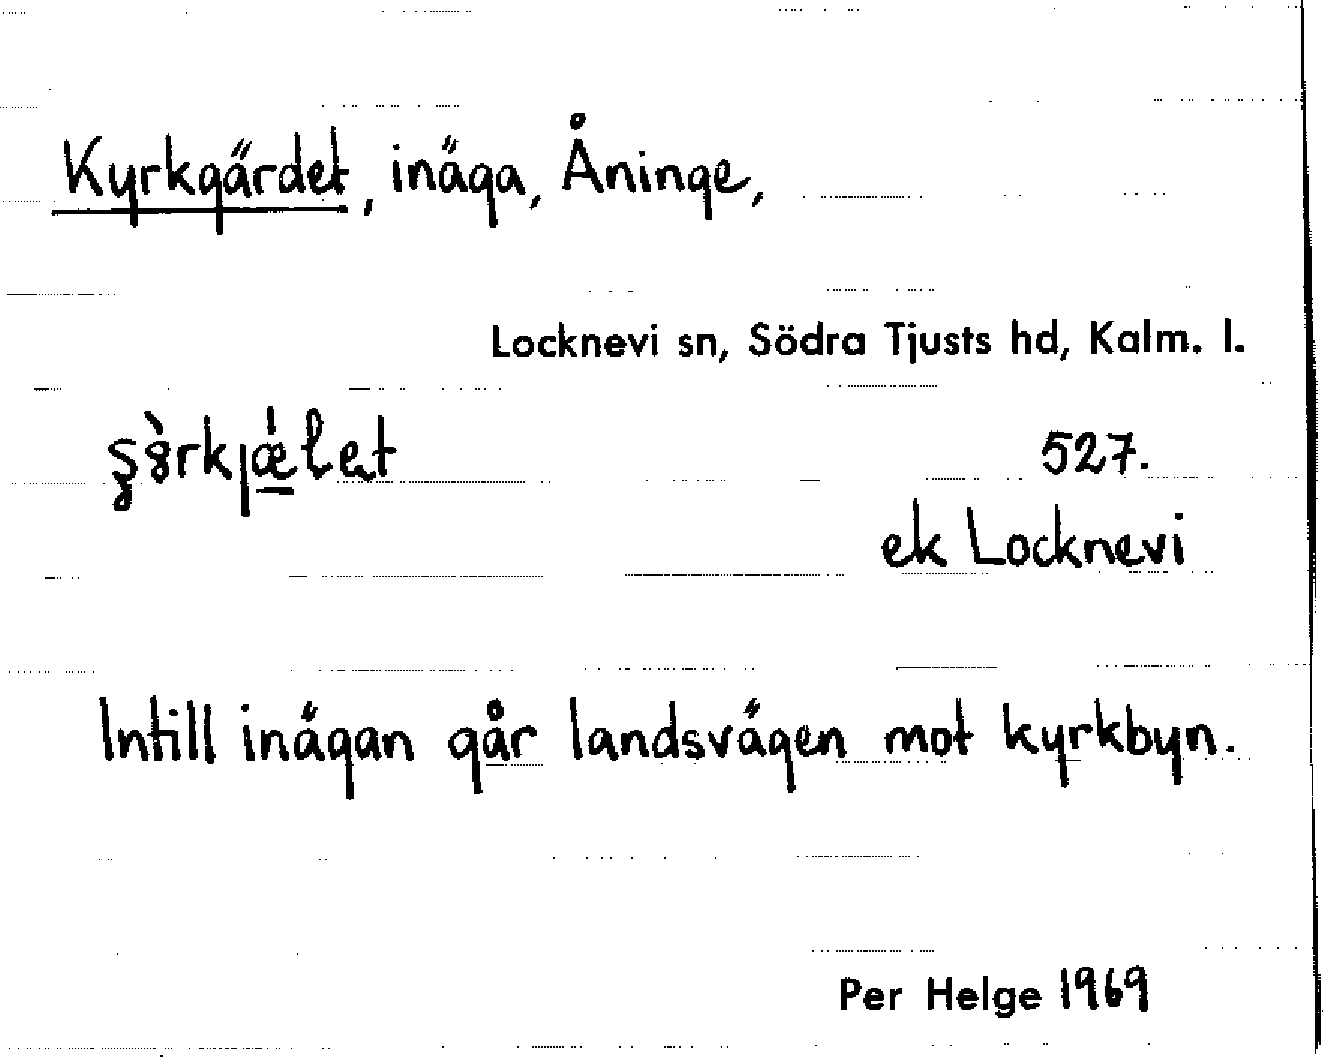 Kyrkgärdet, inäga, Åninge,
Locknevi sn, Södra Tjusts hd, Kalm. l.
527.
ek Locknevi
Intill inägan går landsvägen mot kyrkbyn.
Per Helge 1969